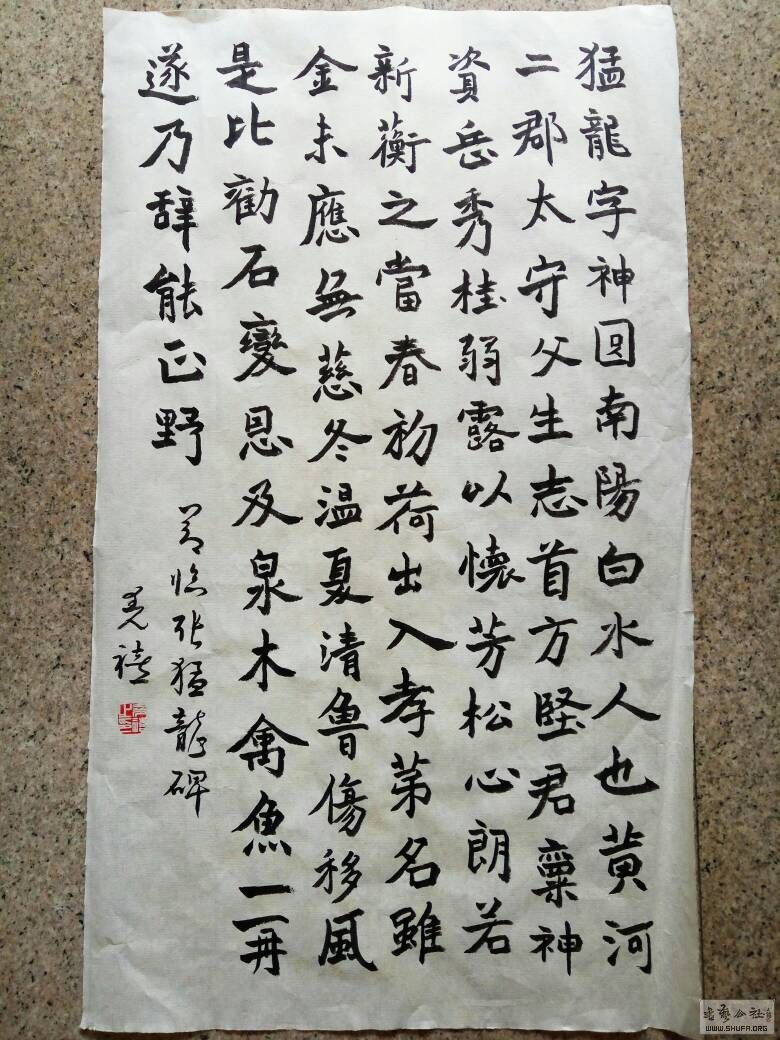 猛龍字神囧南陽白水人也黄河
二郡太守父生志首方堅君稟神
資岳秀桂弱露以懷芳松心朗若
新蘅之當春初荷出入孝苐名雖
金未應無慈冬温夏清魯傷移風
是比勸石變恩及泉木禽魚二冊
遂乃辞能正野
节临张猛龍碑
禧
WWW.SHUFA.ORG